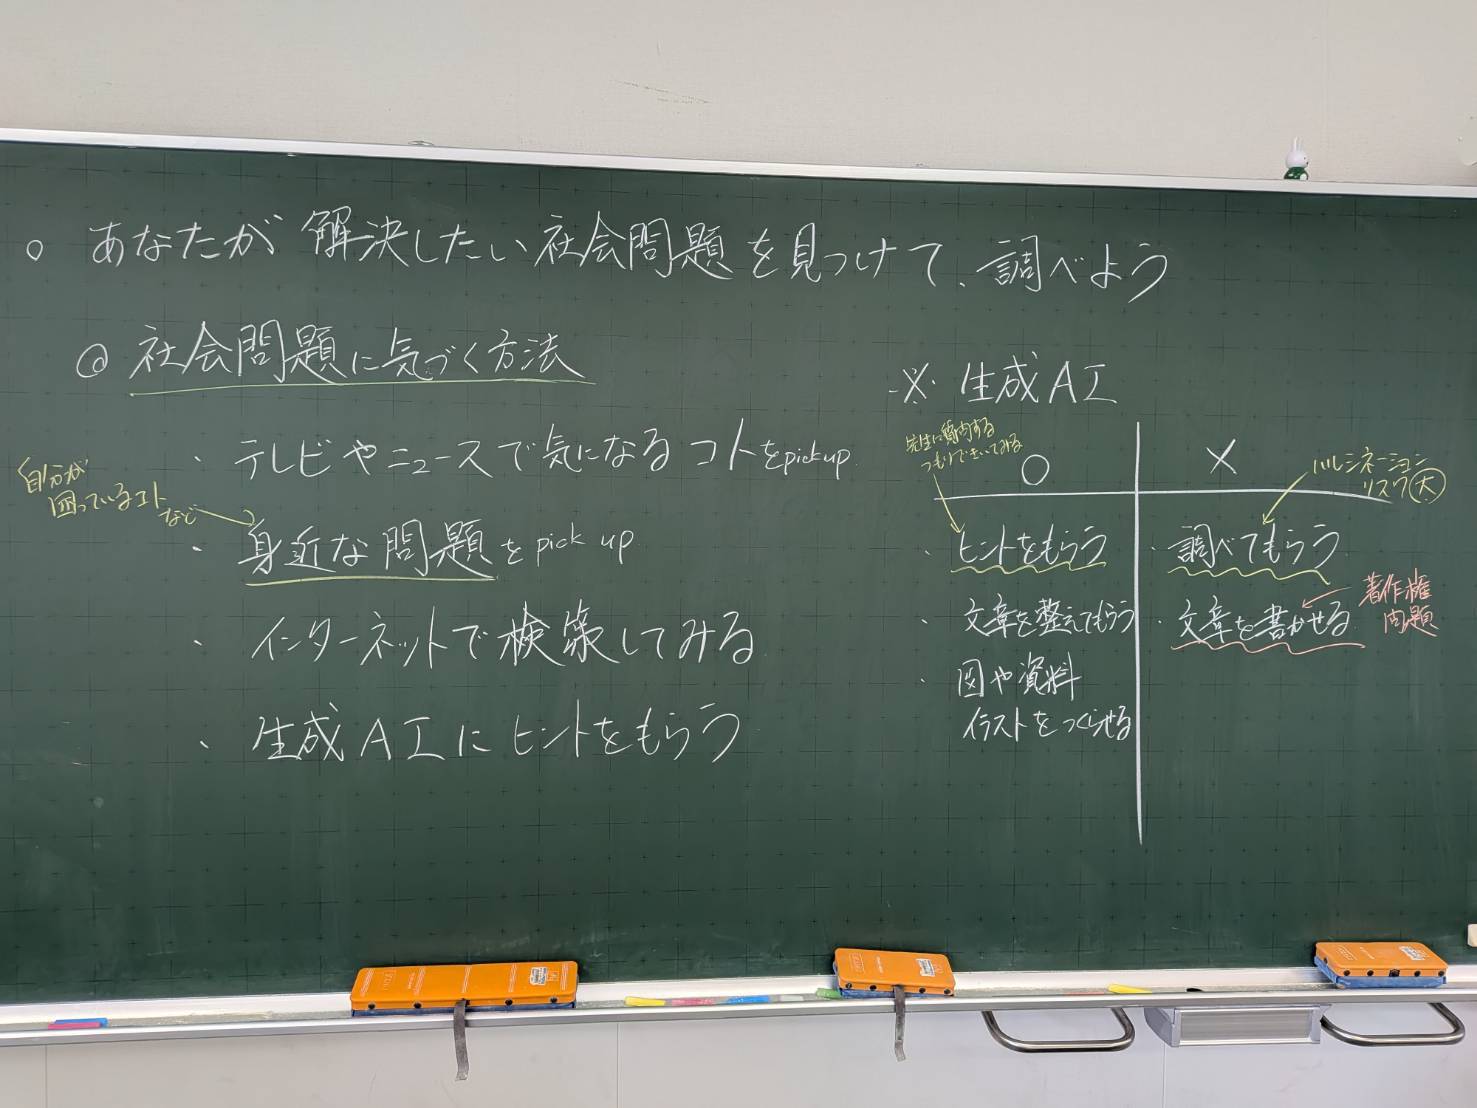 ○ あなたが解決したい社会問題を見つけて、調べよう
◎ 社会問題に気づく方法
・テレビやニュースで気になるコトをpick up
自分が
困っているコト
など
・身近な問題をpick up
・インターネットで検索してみる
・生成AIにヒントをもらう
※ 生成AI
先生に質問する
つもりできいてみる
○
・ヒントをもらう
・文章を整えてもらう
・図や資料
イラストをつくらせる
×
ハルシネーション
リスク大
・調べてもらう
・文章を書かせる
著作権
問題